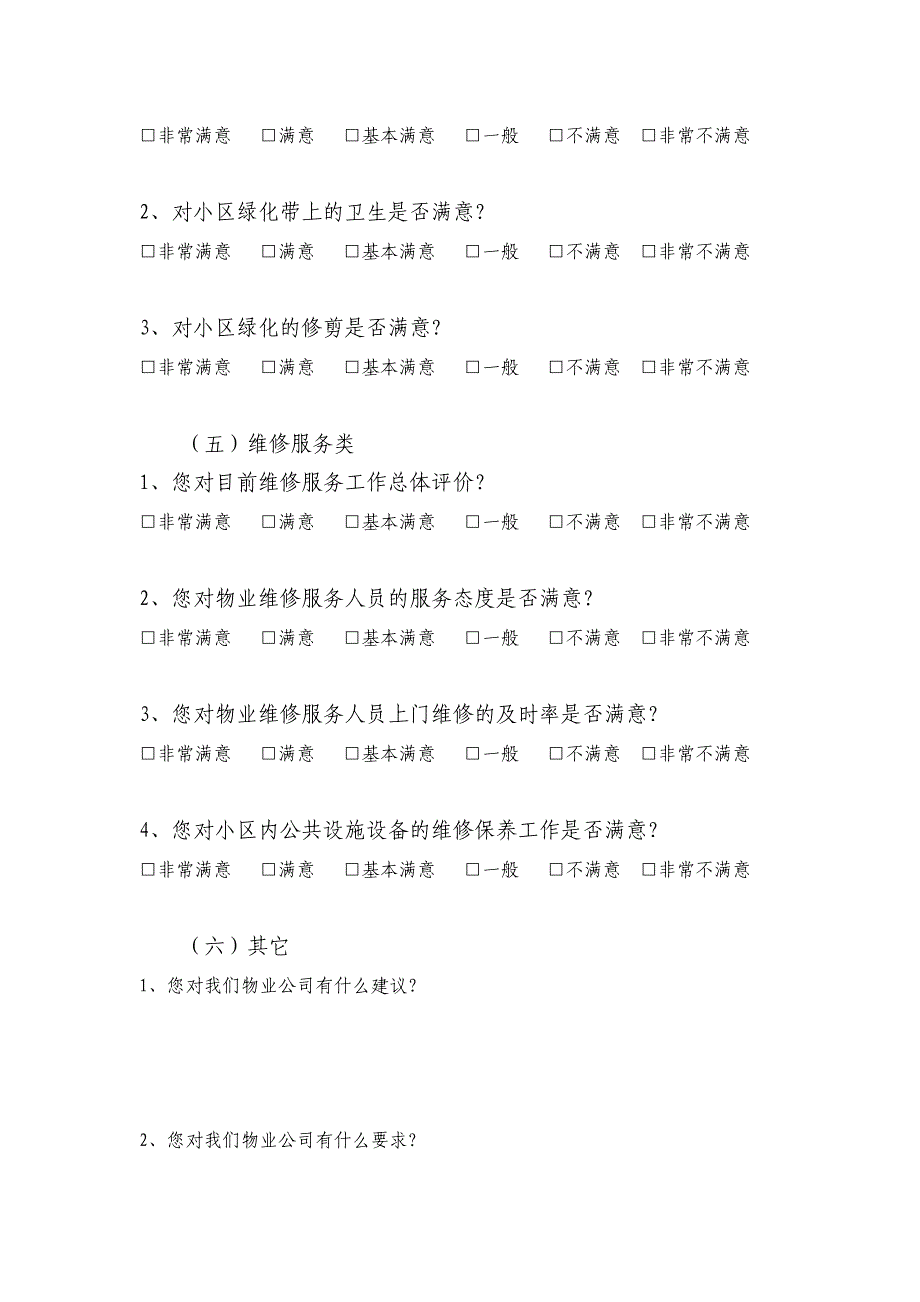 □非常满意 □满意 □基本满意 □一般 □不满意 □非常不满意
2、对小区绿化带上的卫生是否满意？
□非常满意 □满意 □基本满意 □一般 □不满意 □非常不满意
3、对小区绿化的修剪是否满意？
□非常满意 □满意 □基本满意 □一般 □不满意 □非常不满意
（五）维修服务类
1、您对目前维修服务工作总体评价？
□非常满意 □满意 □基本满意 □一般 □不满意 □非常不满意
2、您对物业维修服务人员的服务态度是否满意？
□非常满意 □满意 □基本满意 □一般 □不满意 □非常不满意
3、您对物业维修服务人员上门维修的及时率是否满意？
□非常满意 □满意 □基本满意 □一般 □不满意 □非常不满意
4、您对小区内公共设施设备的维修保养工作是否满意？
□非常满意 □满意 □基本满意 □一般 □不满意 □非常不满意
（六）其它
1、您对我们物业公司有什么建议？
2、您对我们物业公司有什么要求？